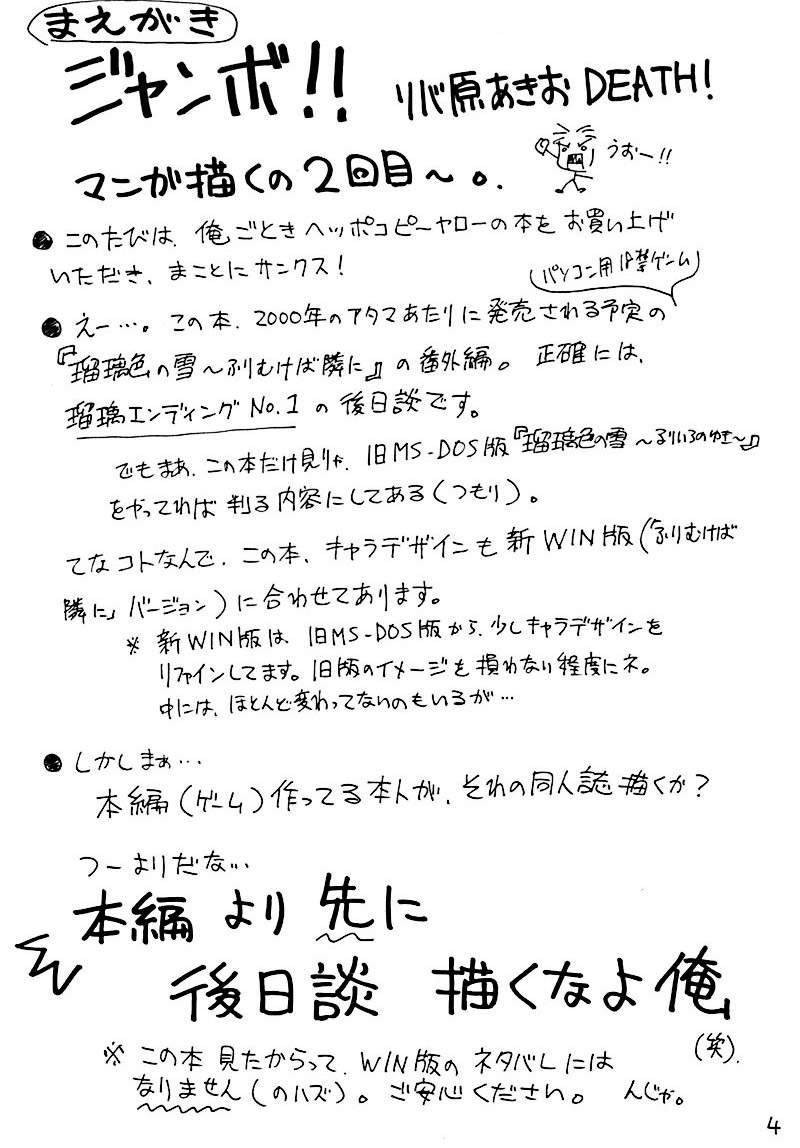 まえがき
ジャンボ!! リバ原あきお DEATH!
うおー!!
マンガ描くの2回目〜。
●このたびは、俺ごときヘッポコピーヤローの本をお買い上げ
いただき、まことにサンクス!
(パソコン用18禁ゲーム)
●えー…。この本、2000年のアタマあたりに発売される予定の
『瑠璃色の雪〜ふりむけば隣に』の番外編。正確には、
瑠璃エンディングNo.1の後日談です。
でもまあ、この本だけ見りゃ、旧MS-DOS版『瑠璃色の雪〜るりいろのゆき〜』
をやってれば判る内容にしてある(つもり)。
てなコトなんで、この本、キャラデザインも新WIN版(「ふりむけば
隣に」バージョン)に合わせてあります。
※新WIN版は、旧MS-DOS版から、少しキャラデザインを
リファインしてます。旧版のイメージを損わない程度にネ。
中には、ほとんど変わってないのもいるが…
●しかしまぁ…
本編(ゲーム)作ってる本人が、それの同人誌描くか?
つーよりだな…
本編より先に
後日談 描くなよ俺
(笑).
※この本見たからって、WIN版のネタバレには
なりません(のハズ)。ご安心ください。 んじゃ。
4